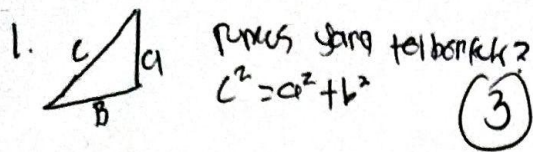 1. C a Rumus yang terbentuk?
B c² = a² + b² 3